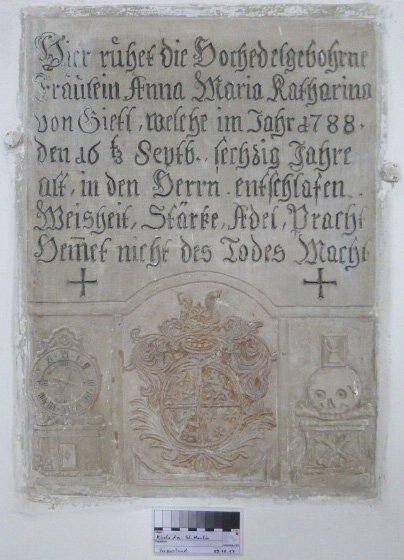 Hier ruhet die Hochedelgebohrne
Fräulein Anna Maria Katharina
von Gietl, welche im Jahr 1788.
den 16 Septb. sechzig Jahre
alt, in den Herrn entschlafen.
Weisheit, Stärke, Adel, Pracht
Hem̅et nicht des Todes Macht